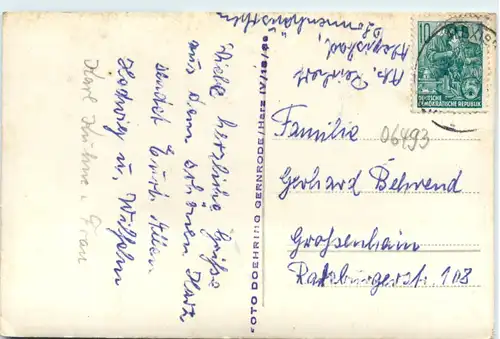 Viele herzliche Grüße
aus dem schönen Harz
sendet Euch Allen
Hedwig u. Wilhelm
Karl Kuhne u. Frau
FOTO DOEHRING GERNRODE/Harz IV/18/
10
DEUTSCHE
DEMOKRATISCHE REPUBLIK
06493
Familie
Gerhard Behrend
Großenhain
Radeburgerst. 108